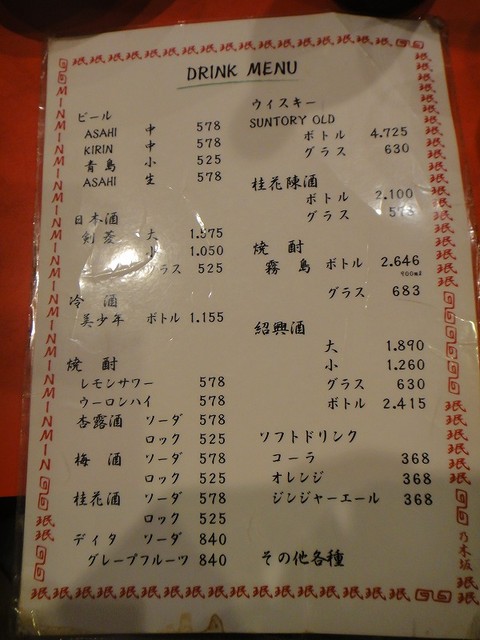 DRINK MENU
ビール
ASAHI 中 578
KIRIN 中 578
青島 小 525
ASAHI 生 578
日本酒
剣菱 大 1.575
小 1.050
グラス 525
冷酒
美少年 ボトル 1.155
焼酎
レモンサワー 578
ウーロンハイ 578
杏露酒 ソーダ 578
ロック 525
梅酒 ソーダ 578
ロック 525
桂花酒 ソーダ 578
ロック 525
ディタ ソーダ 840
グレープフルーツ 840
ウィスキー
SUNTORY OLD
ボトル 4.725
グラス 630
桂花陳酒
ボトル 2.100
グラス 578
焼酎
霧島 ボトル 2.646
900ml
グラス 683
紹興酒
大 1.890
小 1.260
グラス 630
ボトル 2.415
ソフトドリンク
コーラ 368
オレンジ 368
ジンジャーエール 368
その他各種
MINMINMINMINMINMINMINMINMIN
乃木坂